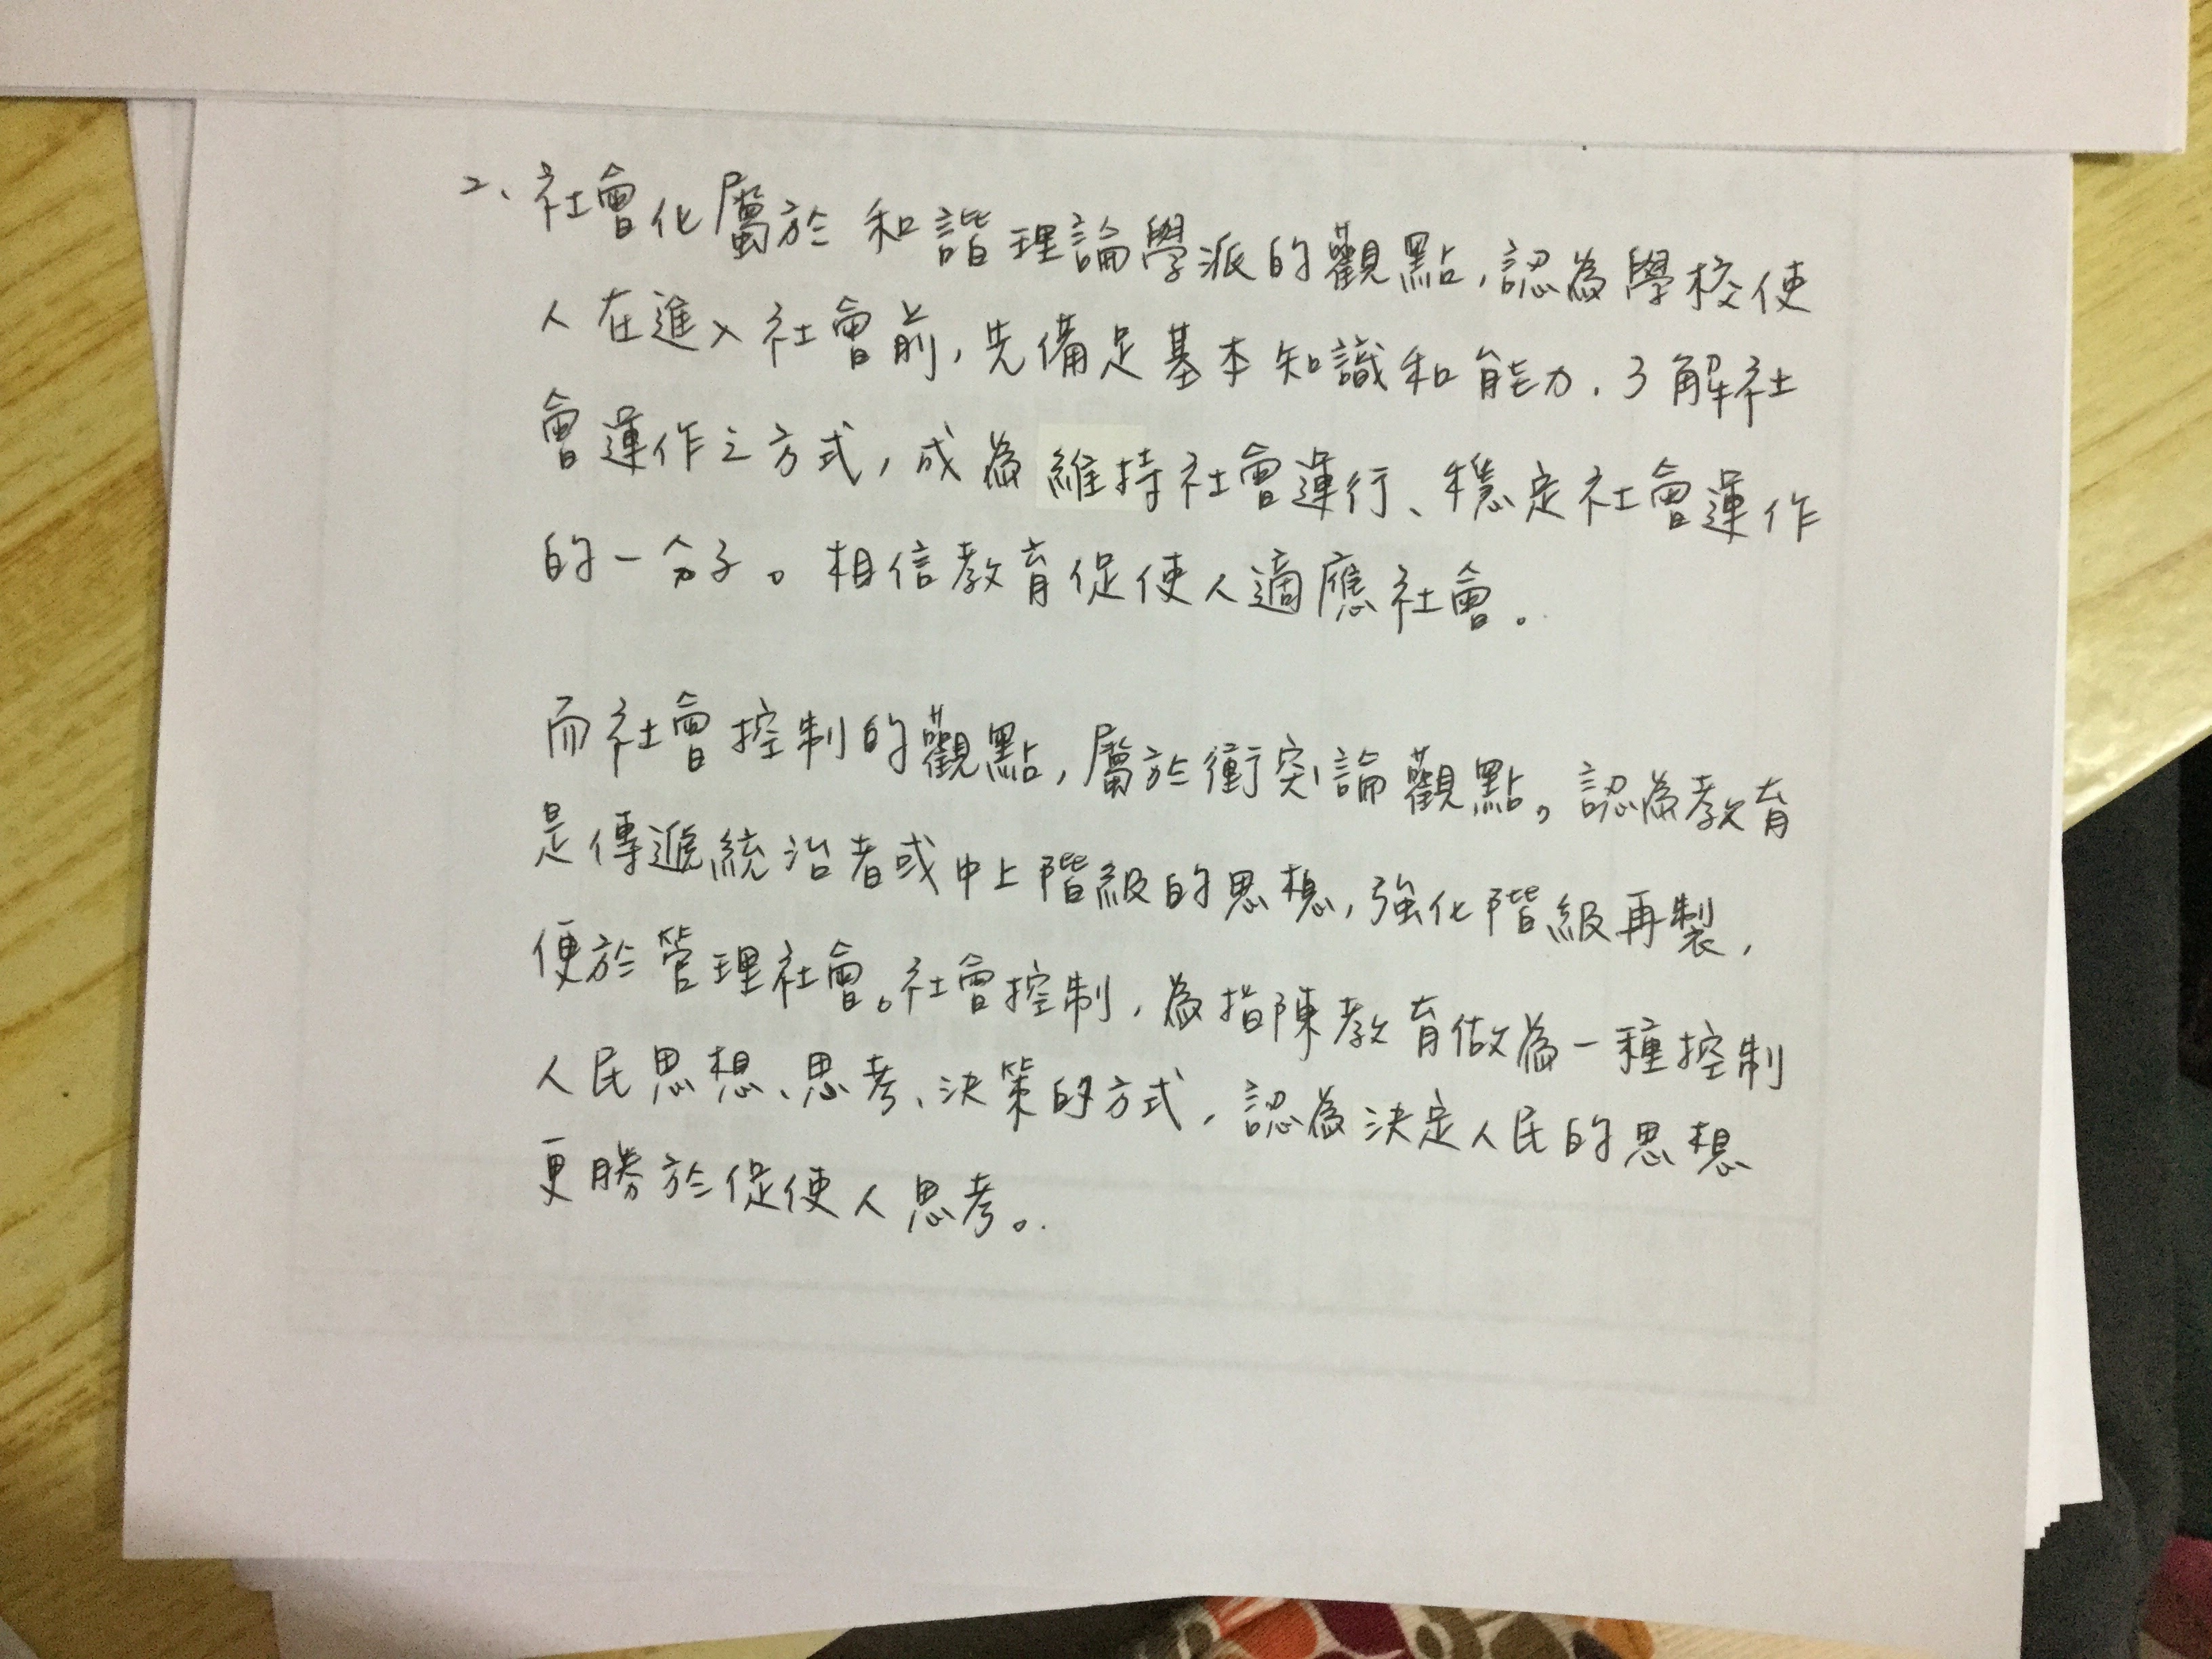 2、社會化屬於和諧理論學派的觀點,認為學校使
人在進入社會前,先備足基本知識和能力,了解社
會運作之方式,成為維持社會運行、穩定社會運作
的一分子。相信教育促使人適應社會。
而社會控制的觀點,屬於衝突論觀點。認為教育
是傳遞統治者或中上階級的思想,強化階級再製,
便於管理社會。社會控制,為指陳教育做為一種控制
人民思想、思考、決策的方式,認為決定人民的思想
更勝於促使人思考。